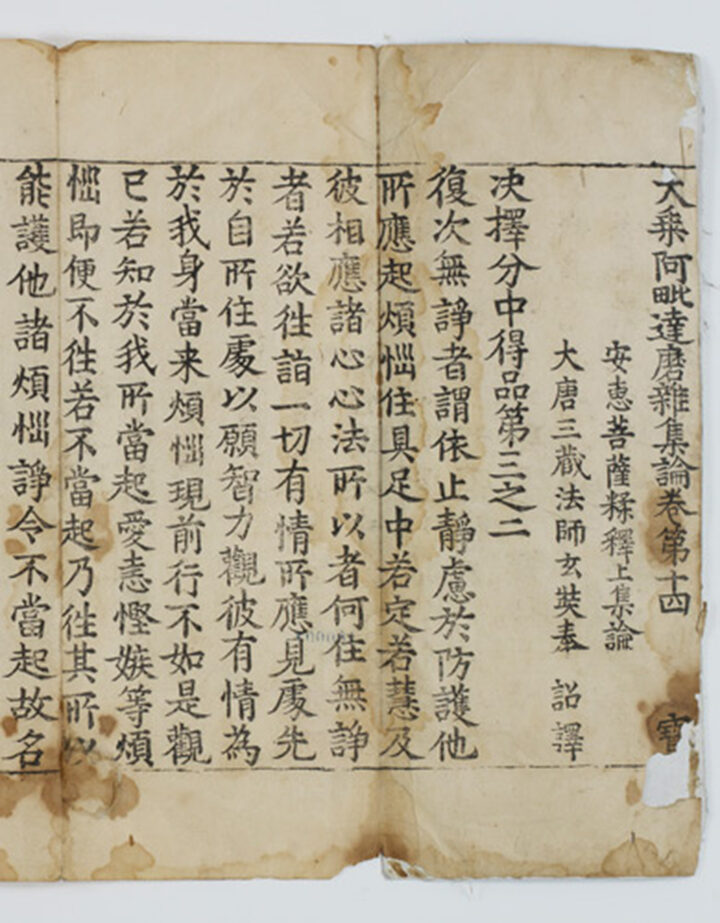 大乘阿毗達磨雜集論卷第十四 寶
安惠菩薩糅釋上集論
大唐三藏法師玄奘奉 詔譯
決擇分中得品第三之二
復次無諍者謂依止靜慮於防護他
所應起煩惱住具足中若定若慧及
彼相應諸心心法所以者何住無諍
者若欲往詣一切有情所應見處先
於自所住處以願智力觀彼有情為
於我身當来煩惱現前行不如是觀
已若知於我所當起愛恚慳嫉等煩
惱即便不往若不當起乃往其所以
能護他諸煩惱諍令不當起故名